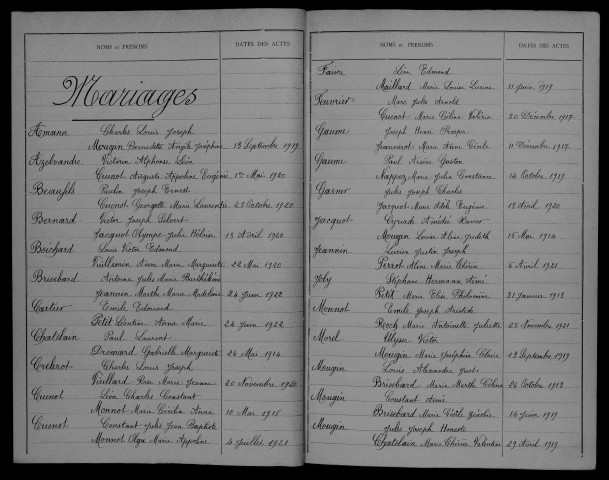 NOMS et PRÉNOMS DATES DES ACTES
Mariages
Amann Charles Louis Joseph
Mougin Bernadette Angèle Joséphine 13 Septembre 1919
Victorin Alphonse Léon
Cuenot Augusta Appoline Eugénie 1er Mai 1920
Beaufils Paulin Joseph Ernest
Cuenot Georgette Marie Laurentine 23 Octobre 1920
Bernard Victor Joseph
Jacquot Olympe Julie Héloïse 13 Avril 1920
Boichard Louis Victor Edmond
Vuillemin Anna Marie Marguerite 22 Mai 1920
Brisebard Antoine Jules Marie Barthélémy
Jeannin Marthe Marie Madeleine 24 Juin 1922
Cartier Emile Edouard
Petit Léontine Anna Marie 24 Juin 1922
Chatelain Paul Laurent
Dromard Gabrielle Marguerite 26 Mai 1914
Charles Louis Joseph
Vieillard Rose Marie Jeanne 20 Novembre 1920
Cuenot Léon Charles Constant
Monnot Marie Cécilia Anna 10 Mai 1915
Cuenot Constant Jules Jean Baptiste
Monnot Olga Marie Appoline 4 Juillet 1921
NOMS et PRÉNOMS DATES DES ACTES
Faivre Léon Edmond
Maillard Marie Louise Lucine 11 Juin 1919
Feuvrier Marc Jules Arnold
Cuenot Marie Célina Valéria 30 Décembre 1917
Gaume Joseph Henri Prosper
Jeannerot Marie Anna Cécile 11 Décembre 1917
Gaume Paul Arsène Gaston
Nappez Marie Julia Constance 14 Octobre 1919
Gasner Jules Joseph Charles
Jacquot Marie Adèle Eugénie 18 Avril 1920
Jacquot Cyriade Amédée Xavier
Mougin Louise Alise Judith 15 Mai 1914
Jeannin Lucien Justin Joseph
Perrot Aline Marie 5 Avril 1921
Joly Stéphane Hermann Aimé
Petit Marie Elise Philomène 31 Janvier 1913
Monnot Emile Joseph Aristide
Marie Antoinette Juliette 25 Novembre 1921
Morel Ulysse Victor
Mougin Marie Joséphine Claire 13 Septembre 1919
Mougin Louis Alexandre
Brisebard Marie Marthe Célina 26 Octobre 1913
Mougin Constant Aimé
Brisebard Marie 14 Juin 1919
Mougin Jules Joseph Honoré
Chatelain Marie Valentine 29 Avril 1919